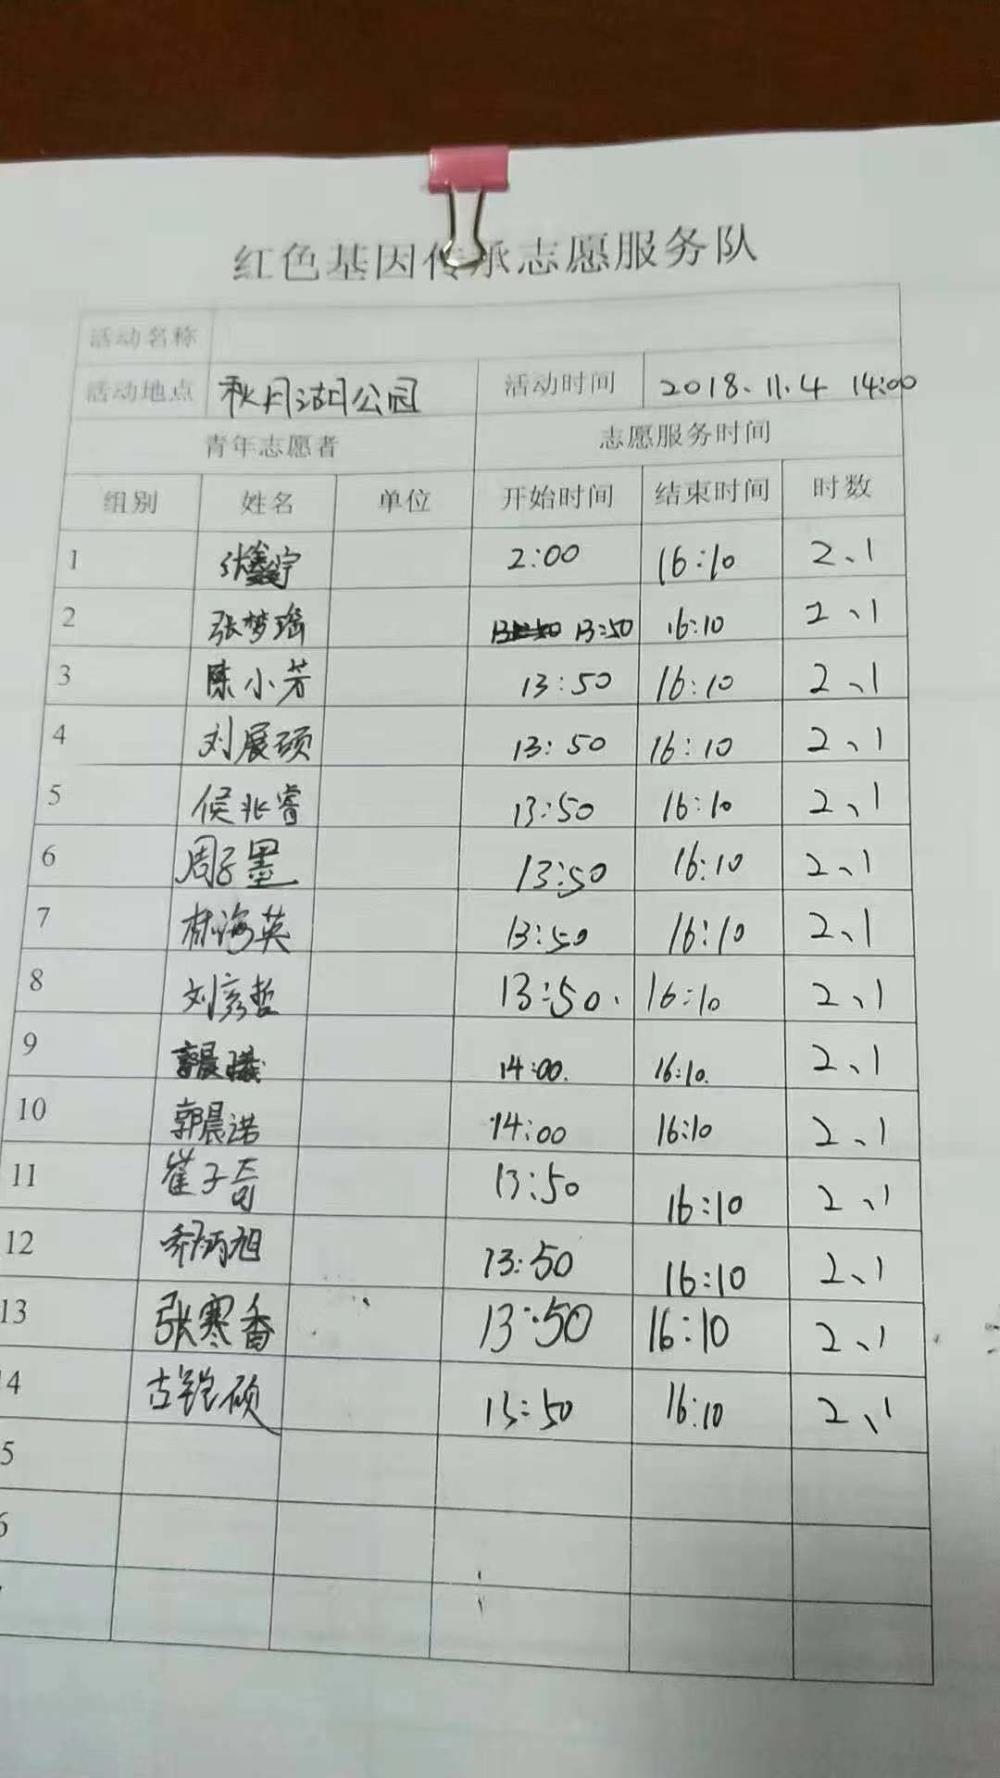 红色基因传承志愿服务队
活动名称
活动地点 秋月湖公园 活动时间 2018.11.4 14:00
青年志愿者 志愿服务时间
组别 姓名 单位 开始时间 结束时间 时数
1 张鑫宇 2:00 16:10 2、1
2 张梦瑶 13:50 16:10 2、1
3 陈小芳 13:50 16:10 2、1
4 刘展硕 13:50 16:10 2、1
5 侯兆睿 13:50 16:10 2、1
6 周子墨 13:50 16:10 2、1
7 林海英 13:50 16:10 2、1
8 刘彦哲 13:50. 16:10 2、1
9 郭晨曦 14:00. 16:10. 2、1
10 郭晨诺 14:00 16:10 2、1
11 崔子奇 13:50 16:10 2、1
12 乔炳旭 13:50 16:10 2、1
13 张寒香 13:50 16:10 2、1
4 古铠硕 13:50 16:10 2、1
5
6